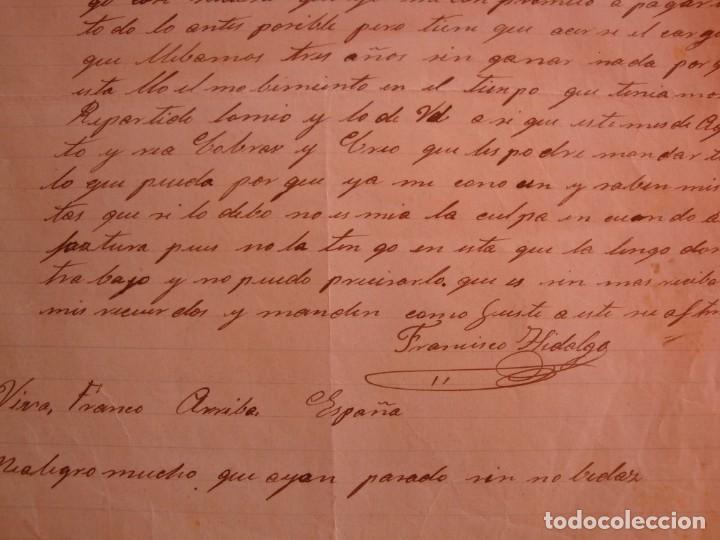 todo lo antes posible pero tiene que acerse el cargo
que llebamos tres años sin ganar nada por q
esta llo el mobimiento en el tiempo que tenia mos
Repartide lomio y lo de Vd a si que este mes de Ag
to y ria Cobrar y Creo que les podre mandar t
lo que pueda por que ya me conocen y saben mis
tas que si lo debo no es mia la culpa en cuando a
faatura pues no la ten go en esta que la tengo don
trabajo y no puedo precisarlo que es sin mas reciba
mis recuerdos y manden como Guste a este su
Francisco Hidalgo
Viva, Franco Arriba. España
mealegro mucho que ayan pasado sin no bedaz
todocoleccion.net